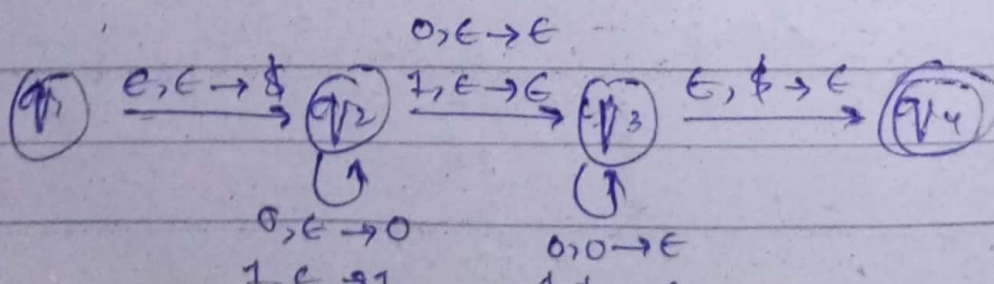 0,ϵ→ϵ
q1 ϵ,ϵ→$ q2 1,ϵ→ϵ q3 ϵ,$→ϵ q4
0,ϵ→0 0,0→ϵ
1,ϵ→1